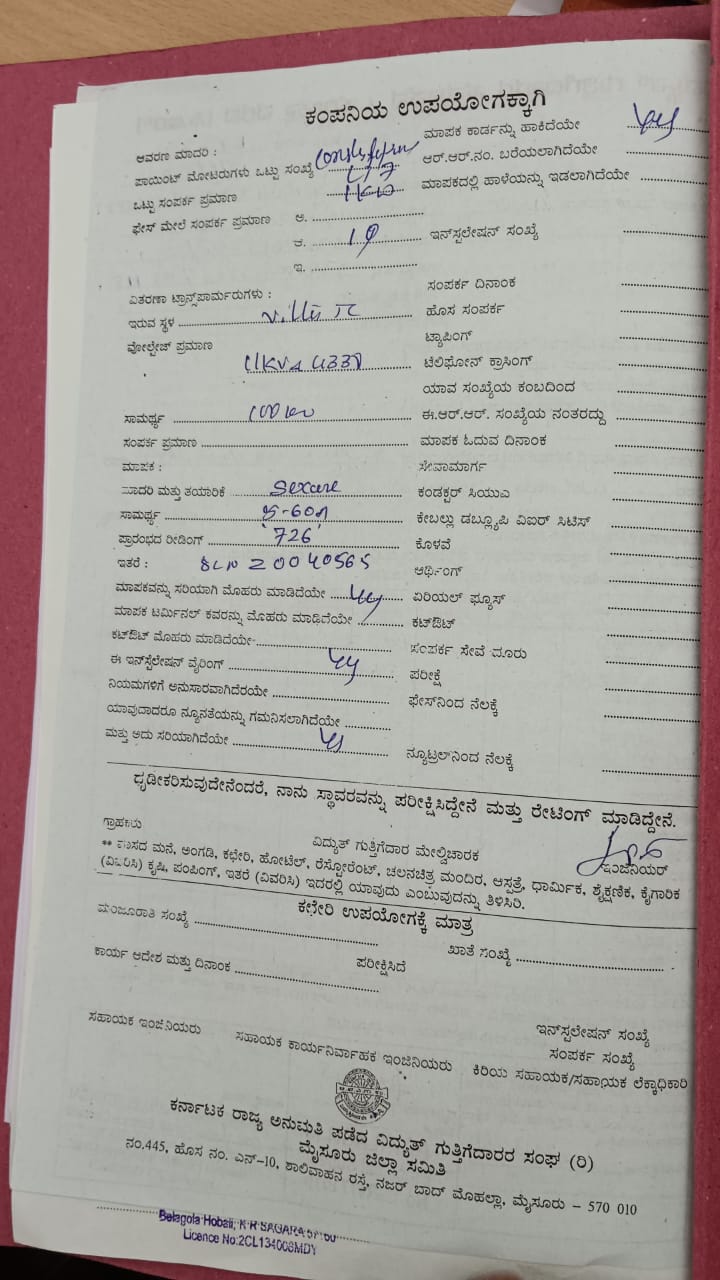 ಕಂಪನಿಯ ಉಪಯೋಗಕ್ಕಾಗಿ
ಆವರಣ ಮಾದರಿ : ಮಾಪಕ ಕಾರ್ಡನ್ನು ಹಾಕಿದೆಯೇ
ಪಾಯಿಂಟ್ ಮೋಟರುಗಳು ಒಟ್ಟು ಸಂಖ್ಯೆ ಆರ್.ಆರ್.ನಂ. ಬರೆಯಲಾಗಿದೆಯೇ
ಒಟ್ಟು ಸಂಪರ್ಕ ಪ್ರಮಾಣ ಮಾಪಕದಲ್ಲಿ ಹಾಳೆಯನ್ನು ಇಡಲಾಗಿದೆಯೇ
ಫೇಸ್ ಮೇಲೆ ಸಂಪರ್ಕ ಪ್ರಮಾಣ ಅ.
ಆ. 1φ ಇನ್‌ಸ್ಟಲೇಷನ್ ಸಂಖ್ಯೆ
ಇ.
ವಿತರಣಾ ಟ್ರಾನ್ಸ್‌ಪಾರ್ಮರುಗಳು : ಸಂಪರ್ಕ ದಿನಾಂಕ
ಇರುವ ಸ್ಥಳ ಹೊಸ ಸಂಪರ್ಕ
ವೋಲ್ಟೇಜ್ ಪ್ರಮಾಣ ಟ್ಯಾಪಿಂಗ್
ಟೆಲಿಫೋನ್ ಕ್ರಾಸಿಂಗ್
ಯಾವ ಸಂಖ್ಯೆಯ ಕಂಬದಿಂದ
ಸಾಮರ್ಥ್ಯ ಈ.ಆರ್.ಆರ್. ಸಂಖ್ಯೆಯ ನಂತರದ್ದು
ಸಂಪರ್ಕ ಪ್ರಮಾಣ ಮಾಪಕ ಓದುವ ದಿನಾಂಕ
ಮಾಪಕ : ಸೇವಾಮಾರ್ಗ
ಮಾದರಿ ಮತ್ತು ತಯಾರಿಕೆ Secure ಕಂಡಕ್ಟರ್ ಸಿಯುಎ
ಸಾಮರ್ಥ್ಯ 5-60A ಕೇಬಲ್ಲು ಡಬ್ಲ್ಯೂಪಿ ವಿಐರ್ ಸಿಟಿಸ್
ಪ್ರಾರಂಭದ ರೀಡಿಂಗ್ '726' ಕೊಳವೆ
ಇತರೆ : SLN 20040565 ಆರ್ಥಿಂಗ್
ಮಾಪಕವನ್ನು ಸರಿಯಾಗಿ ಮೊಹರು ಮಾಡಿದೆಯೇ ಏರಿಯಲ್ ಫ್ಯೂಸ್
ಮಾಪಕ ಟರ್ಮಿನಲ್ ಕವರನ್ನು ಮೊಹರು ಮಾಡಿದೆಯೇ ಕಟ್‌ಔಟ್
ಕಟ್‌ಔಟ್ ಮೊಹರು ಮಾಡಿದೆಯೇ ಸಂಪರ್ಕ ಸೇವೆ ದೂರು
ಈ ಇನ್‌ಸ್ಟೆಲೇಷನ್ ವೈರಿಂಗ್ ಪರೀಕ್ಷೆ
ನಿಯಮಗಳಿಗೆ ಅನುಸಾರವಾಗಿದೆರಯೇ ಫೇಸ್‌ನಿಂದ ನೆಲಕ್ಕೆ
ಯಾವುದಾದರೂ ನ್ಯೂನತೆಯನ್ನು ಗಮನಿಸಲಾಗಿದೆಯೇ
ಮತ್ತು ಅದು ಸರಿಯಾಗಿದೆಯೇ ನ್ಯೂಟ್ರಲ್‌ನಿಂದ ನೆಲಕ್ಕೆ
ಧೃಡೀಕರಿಸುವುದೇನೆಂದರೆ, ನಾನು ಸ್ಥಾವರವನ್ನು ಪರೀಕ್ಷಿಸಿದ್ದೇನೆ ಮತ್ತು ರೇಟಿಂಗ್ ಮಾಡಿದ್ದೇನೆ.
ಗ್ರಾಹಕರು ವಿದ್ಯುತ್ ಗುತ್ತಿಗೆದಾರ ಮೇಲ್ವಿಚಾರಕ ಇಂಜಿನಿಯರ್
** ವಾಸದ ಮನೆ, ಅಂಗಡಿ, ಕಛೇರಿ, ಹೋಟೆಲ್, ರೆಸ್ಟೋರೆಂಟ್, ಚಲನಚಿತ್ರ ಮಂದಿರ, ಆಸ್ಪತ್ರೆ, ಧಾರ್ಮಿಕ, ಶೈಕ್ಷಣಿಕ, ಕೈಗಾರಿಕ
(ವಿವರಿಸಿ) ಕೃಷಿ, ಪಂಪಿಂಗ್, ಇತರೆ (ವಿವರಿಸಿ) ಇದರಲ್ಲಿ ಯಾವುದು ಎಂಬುವುದನ್ನು ತಿಳಿಸಿರಿ.
ಕಛೇರಿ ಉಪಯೋಗಕ್ಕೆ ಮಾತ್ರ
ಮಂಜೂರಾತಿ ಸಂಖ್ಯೆ ಖಾತೆ ಸಂಖ್ಯೆ
ಕಾರ್ಯ ಆದೇಶ ಮತ್ತು ದಿನಾಂಕ ಪರೀಕ್ಷಿಸಿದೆ
ಇನ್‌ಸ್ಟಲೇಷನ್ ಸಂಖ್ಯೆ
ಸಂಪರ್ಕ ಸಂಖ್ಯೆ
ಸಹಾಯಕ ಇಂಜಿನಿಯರು ಸಹಾಯಕ ಕಾರ್ಯನಿರ್ವಾಹಕ ಇಂಜಿನಿಯರು ಕಿರಿಯ ಸಹಾಯಕ/ಸಹಾಯಕ ಲೆಕ್ಕಾಧಿಕಾರಿ
ಕರ್ನಾಟಕ ರಾಜ್ಯ ಅನುಮತಿ ಪಡೆದ ವಿದ್ಯುತ್ ಗುತ್ತಿಗೆದಾರರ ಸಂಘ (ರಿ)
ಮೈಸೂರು ಜಿಲ್ಲಾ ಸಮಿತಿ
ನಂ.445, ಹೊಸ ನಂ. ಎನ್-10, ಶಾಲಿವಾಹನ ರಸ್ತೆ, ನಜರ್ ಬಾದ್ ಮೊಹಲ್ಲಾ, ಮೈಸೂರು – 570 010
Belagola Hobali, K R SAGARA
Licence No:2CL134008MDY